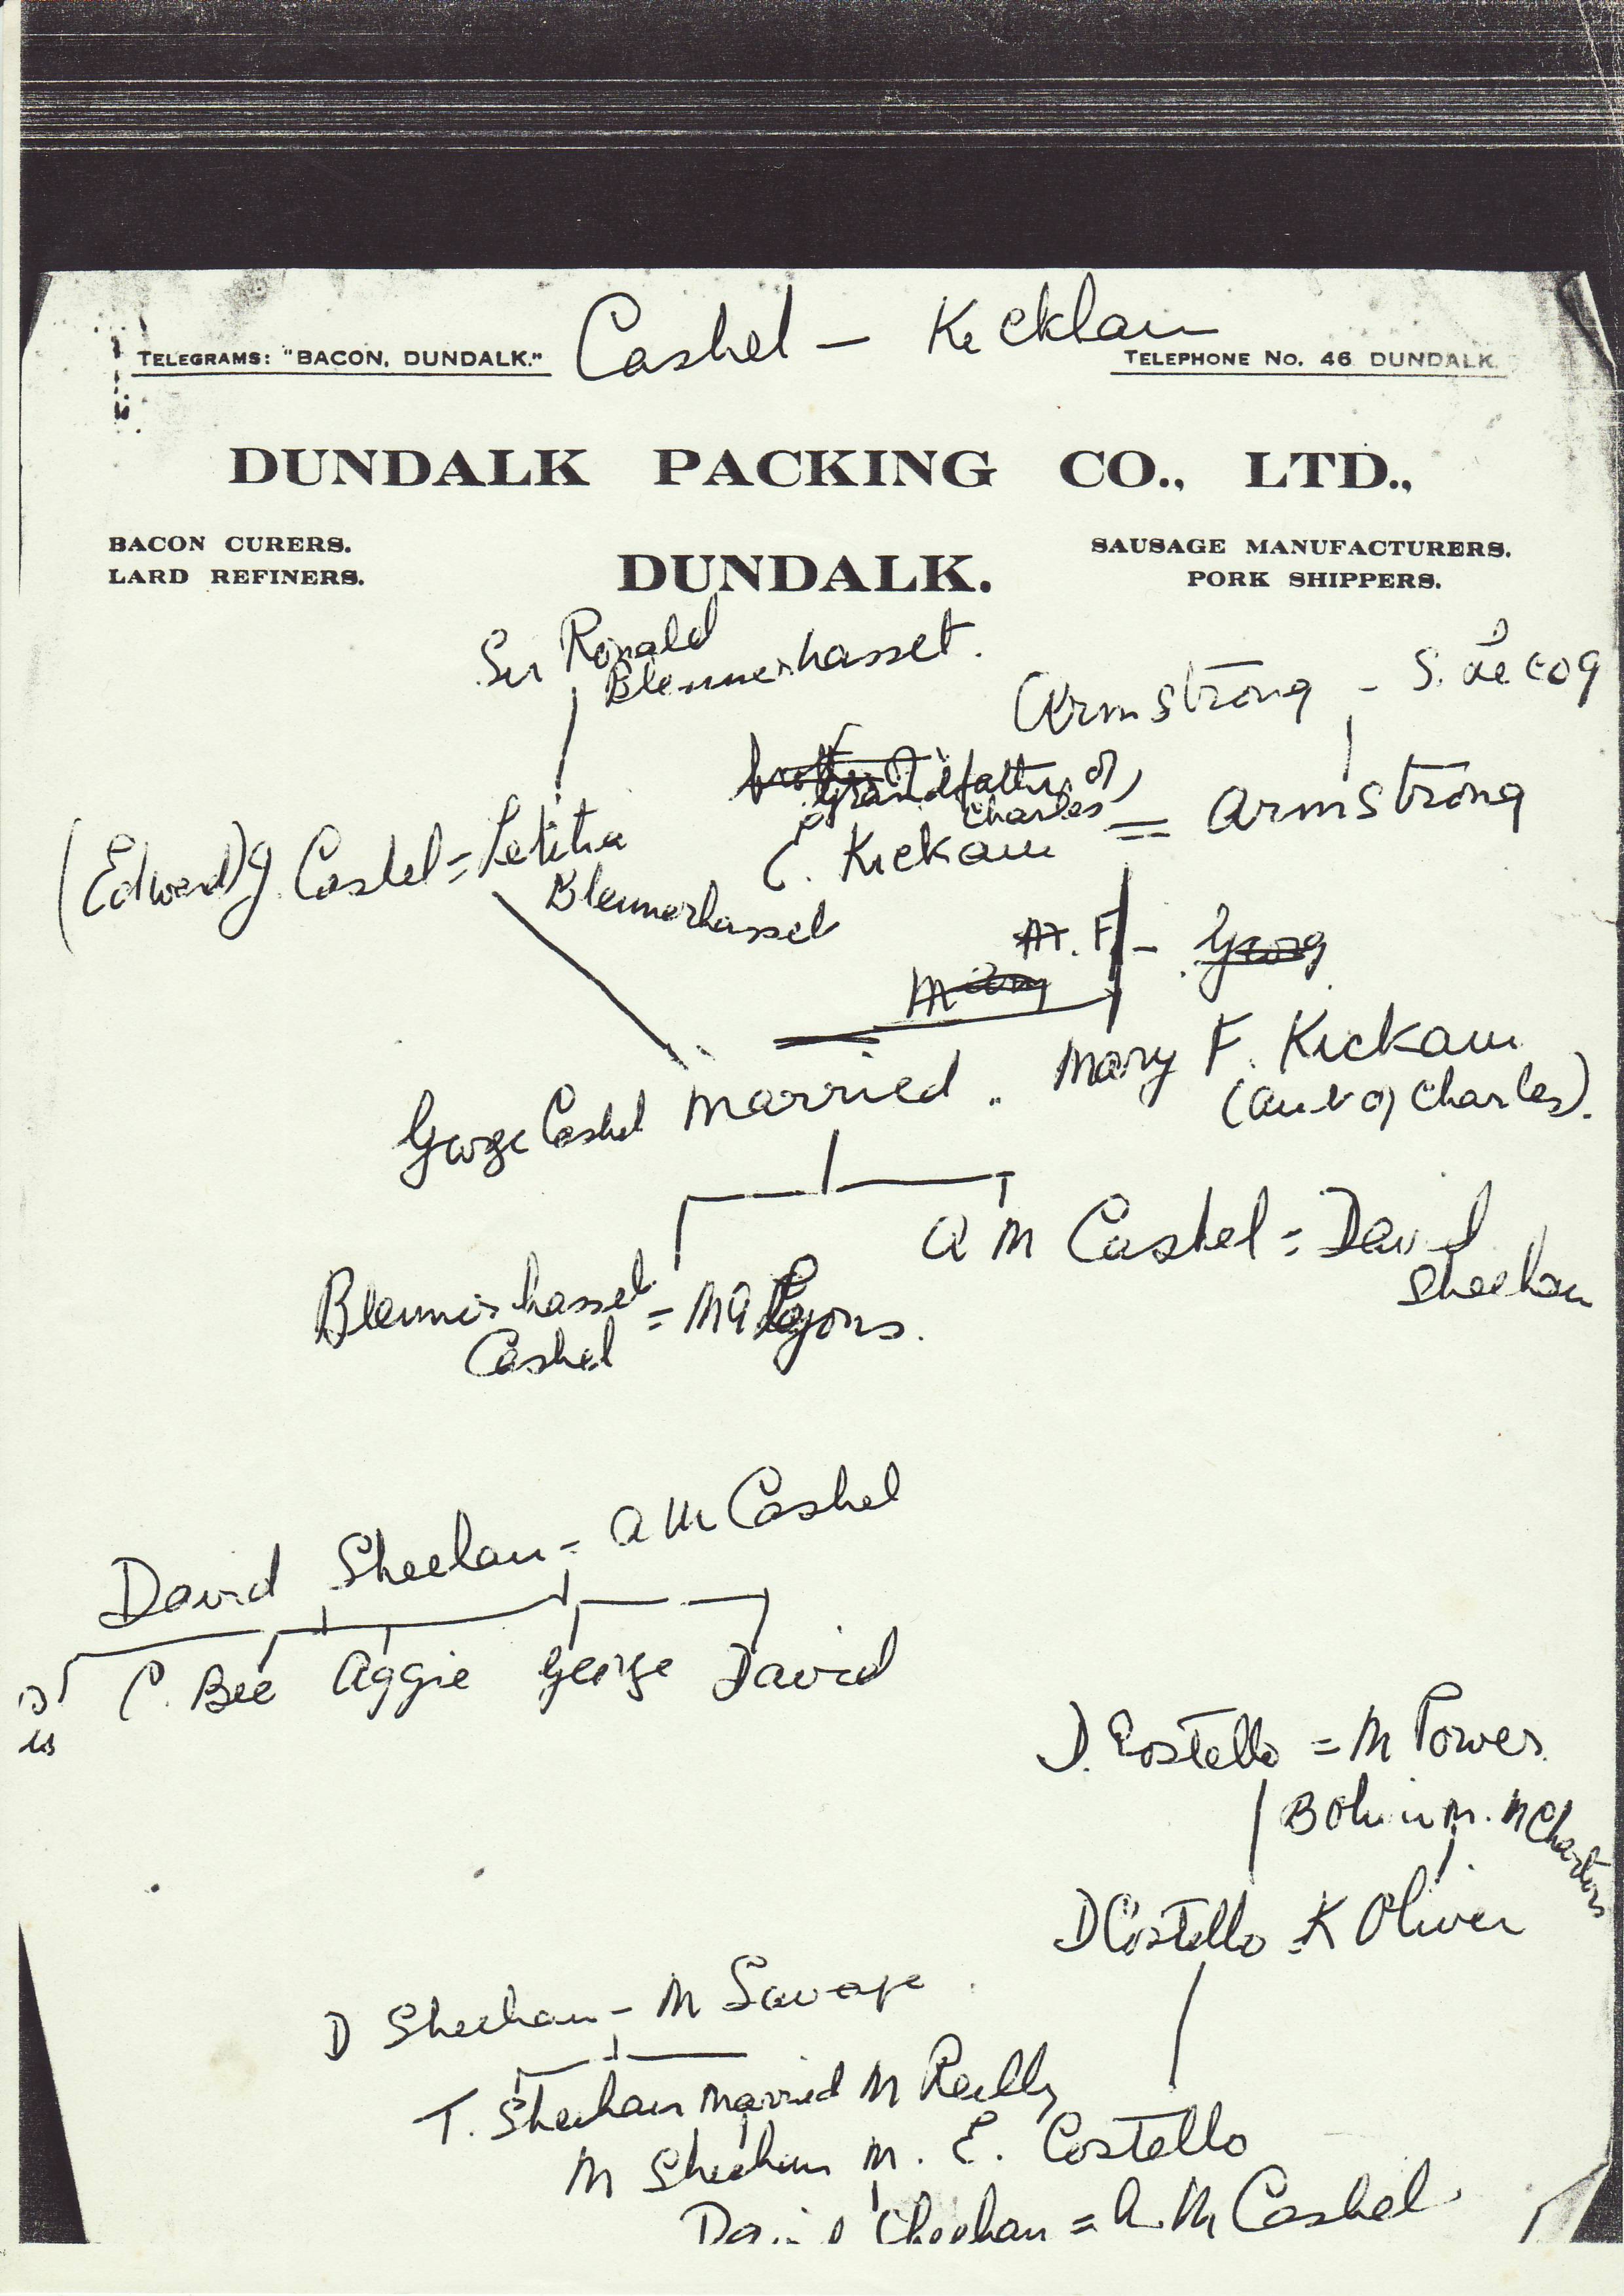 Cashel – Kickham
TELEGRAMS: "BACON, DUNDALK."
TELEPHONE No. 46 DUNDALK.
DUNDALK PACKING CO., LTD.,
BACON CURERS.
LARD REFINERS.
DUNDALK.
SAUSAGE MANUFACTURERS.
PORK SHIPPERS.
Sir Ronald
Blennerhasset.
Armstrong –
Grandfather of
Charles
(Edward) G. Cashel = Letitia
Blennerhasset
C. Kickam = Armstrong
M. F. –
George Cashel married .. Mary F. Kickam
(aunt of Charles).
A M Cashel = David
Sheehan
Blennerhasset
Cashel = M A Lyons.
David Sheehan = A M Cashel
C. Bee Aggie George David
D. Costello = M Power
D Costello = K Oliver
D Sheehan – M Savage
T. Sheehan married M Reilly
M Sheehan M. E. Costello
David Sheehan = A. M Cashel